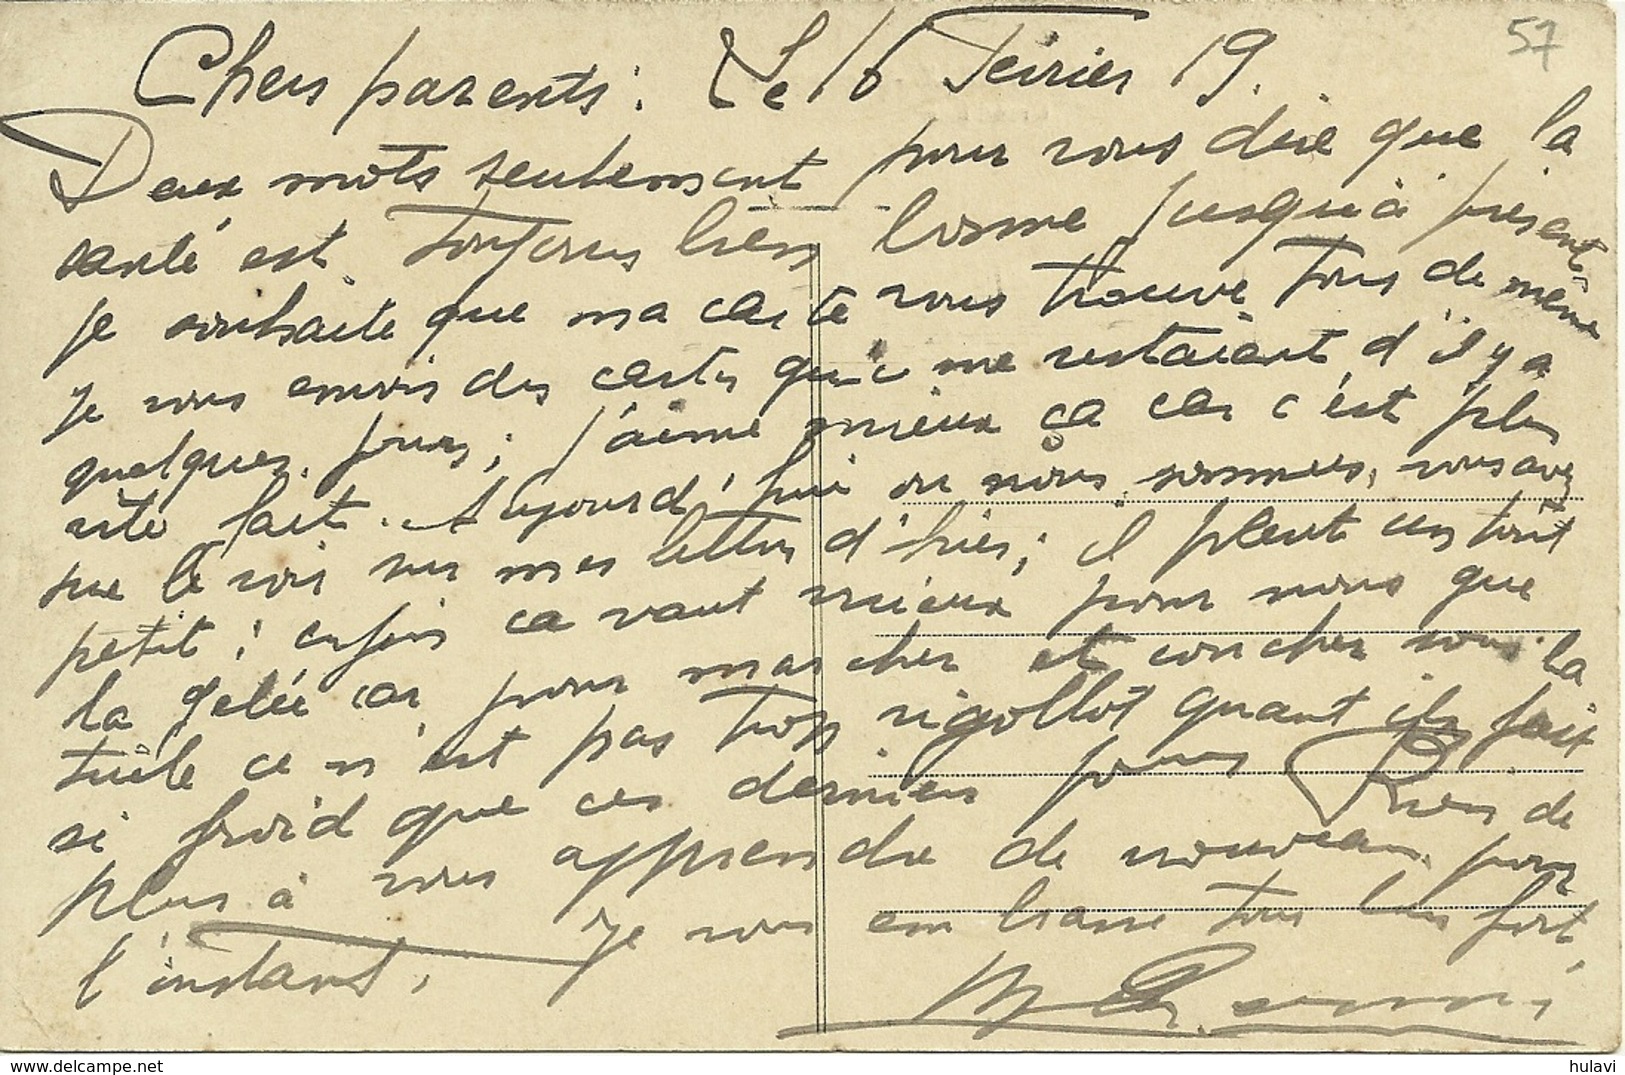 57
Chers parents : Le 16 Février 19.
Deux mots seulement pour vous dire que la
santé est toujours bien bonne jusqu'à présent,
je souhaite que ma carte vous trouve tous de même
je vous envois des cartes qui me restaient d'il y a
quelques jours ; j'aime mieux ça car c'est plus
vite fait. Aujourd'hui ou nous sommes, vous avez
sue le voir sur mes lettres d'hier ; il pleut un tout
petit ; enfin ca vaut mieux pour nous que
la gelée car pour marcher et coucher sous la
tuile ce n'est pas trop rigollot quant ils fait
si froid que ces derniers jours Rien de
plus à vous apprendre de nouveau pour
l'instant, je vous embrasse tous bien fort,
hulavi